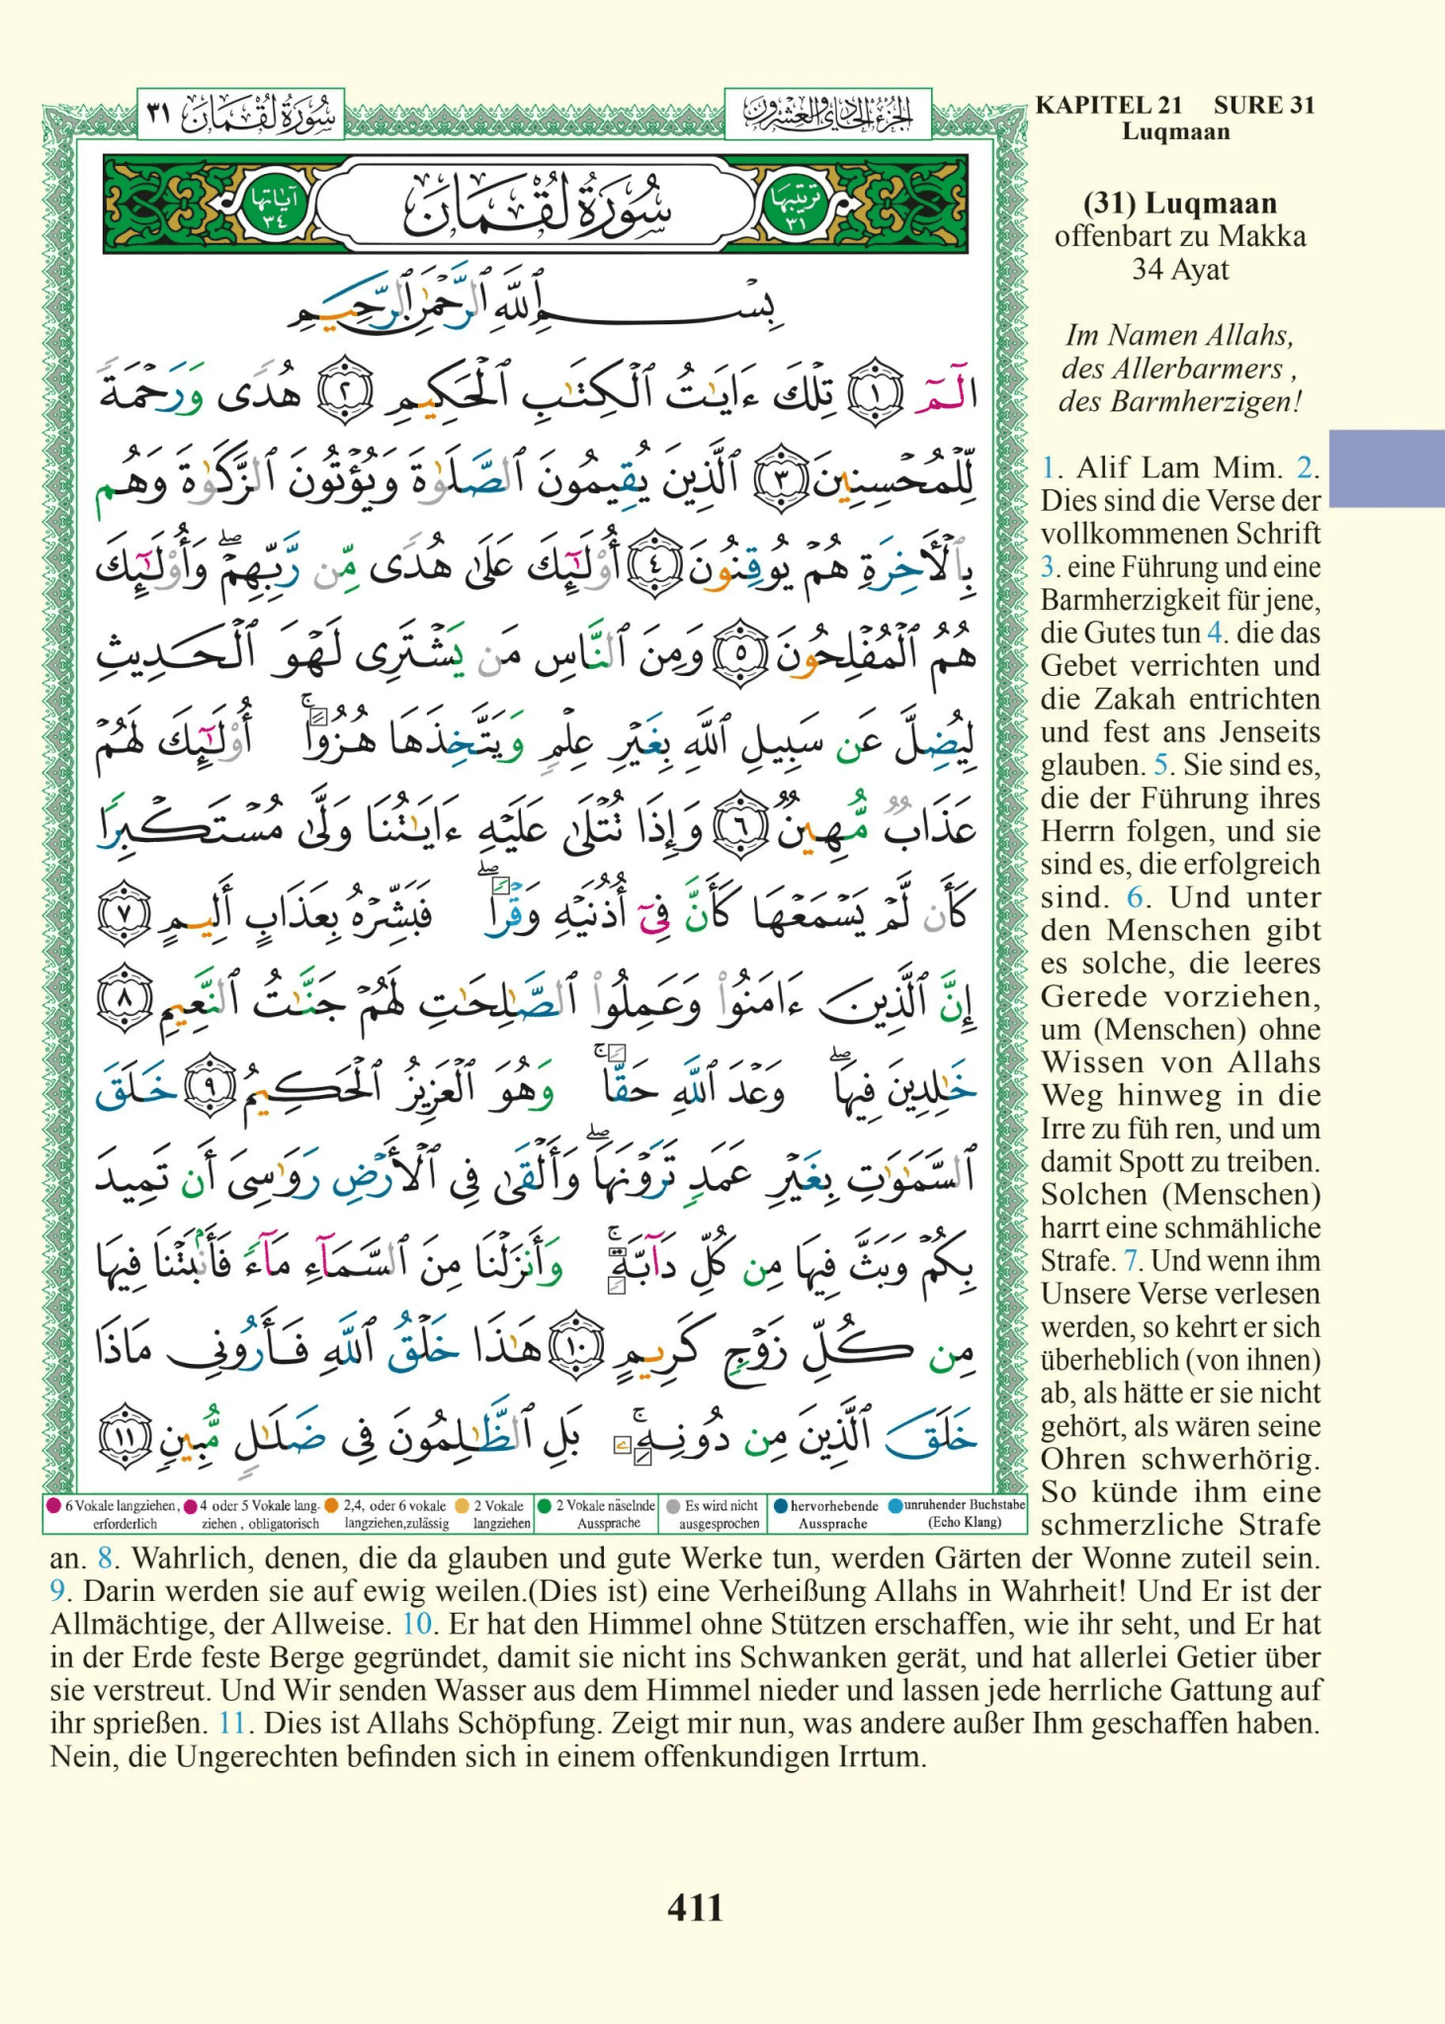 سُورَةُ لُقْمَانَ ٣١
الجُزْءُ الحَادِي وَالعِشْرُونَ
KAPITEL 21 SURE 31
Luqmaan
ترتيبها ٣١
سُورَةُ لُقْمَانَ
آياتها ٣٤
بِسْمِ ٱللَّهِ ٱلرَّحْمَٰنِ ٱلرَّحِيمِ
الٓمٓ ١ تِلْكَ ءَايَٰتُ ٱلْكِتَٰبِ ٱلْحَكِيمِ ٢ هُدًى وَرَحْمَةً
لِّلْمُحْسِنِينَ ٣ ٱلَّذِينَ يُقِيمُونَ ٱلصَّلَوٰةَ وَيُؤْتُونَ ٱلزَّكَوٰةَ وَهُم
بِٱلْأَخِرَةِ هُمْ يُوقِنُونَ ٤ أُو۟لَٰٓئِكَ عَلَىٰ هُدًى مِّن رَّبِّهِمْ ۖ وَأُو۟لَٰٓئِكَ
هُمُ ٱلْمُفْلِحُونَ ٥ وَمِنَ ٱلنَّاسِ مَن يَشْتَرِى لَهْوَ ٱلْحَدِيثِ
لِيُضِلَّ عَن سَبِيلِ ٱللَّهِ بِغَيْرِ عِلْمٍ وَيَتَّخِذَهَا هُزُوًا ۚ أُو۟لَٰٓئِكَ لَهُمْ
عَذَابٌ مُّهِينٌ ٦ وَإِذَا تُتْلَىٰ عَلَيْهِ ءَايَٰتُنَا وَلَّىٰ مُسْتَكْبِرًا
كَأَن لَّمْ يَسْمَعْهَا كَأَنَّ فِىٓ أُذُنَيْهِ وَقْرًا ۖ فَبَشِّرْهُ بِعَذَابٍ أَلِيمٍ ٧
إِنَّ ٱلَّذِينَ ءَامَنُوا۟ وَعَمِلُوا۟ ٱلصَّٰلِحَٰتِ لَهُمْ جَنَّٰتُ ٱلنَّعِيمِ ٨
خَٰلِدِينَ فِيهَا ۖ وَعْدَ ٱللَّهِ حَقًّا ۚ وَهُوَ ٱلْعَزِيزُ ٱلْحَكِيمُ ٩ خَلَقَ
ٱلسَّمَٰوَٰتِ بِغَيْرِ عَمَدٍ تَرَوْنَهَا ۖ وَأَلْقَىٰ فِى ٱلْأَرْضِ رَوَٰسِىَ أَن تَمِيدَ
بِكُمْ وَبَثَّ فِيهَا مِن كُلِّ دَآبَّةٍ ۚ وَأَنزَلْنَا مِنَ ٱلسَّمَآءِ مَآءً فَأَنۢبَتْنَا فِيهَا
مِن كُلِّ زَوْجٍ كَرِيمٍ ١٠ هَٰذَا خَلْقُ ٱللَّهِ فَأَرُونِى مَاذَا
خَلَقَ ٱلَّذِينَ مِن دُونِهِۦ ۚ بَلِ ٱلظَّٰلِمُونَ فِى ضَلَٰلٍ مُّبِينٍ ١١
6 Vokale langziehen, erforderlich
4 oder 5 Vokale lang- ziehen , obligatorisch
2,4, oder 6 vokale langziehen,zulässig
2 Vokale langziehen
2 Vokale näselnde Aussprache
Es wird nicht ausgesprochen
hervorhebende Aussprache
unruhender Buchstabe (Echo Klang)
(31) Luqmaan
offenbart zu Makka
34 Ayat
Im Namen Allahs,
des Allerbarmers ,
des Barmherzigen!
1. Alif Lam Mim. 2.
Dies sind die Verse der
vollkommenen Schrift
3. eine Führung und eine
Barmherzigkeit für jene,
die Gutes tun 4. die das
Gebet verrichten und
die Zakah entrichten
und fest ans Jenseits
glauben. 5. Sie sind es,
die der Führung ihres
Herrn folgen, und sie
sind es, die erfolgreich
sind. 6. Und unter
den Menschen gibt
es solche, die leeres
Gerede vorziehen,
um (Menschen) ohne
Wissen von Allahs
Weg hinweg in die
Irre zu füh ren, und um
damit Spott zu treiben.
Solchen (Menschen)
harrt eine schmähliche
Strafe. 7. Und wenn ihm
Unsere Verse verlesen
werden, so kehrt er sich
überheblich (von ihnen)
ab, als hätte er sie nicht
gehört, als wären seine
Ohren schwerhörig.
So künde ihm eine
schmerzliche Strafe
an. 8. Wahrlich, denen, die da glauben und gute Werke tun, werden Gärten der Wonne zuteil sein.
9. Darin werden sie auf ewig weilen.(Dies ist) eine Verheißung Allahs in Wahrheit! Und Er ist der
Allmächtige, der Allweise. 10. Er hat den Himmel ohne Stützen erschaffen, wie ihr seht, und Er hat
in der Erde feste Berge gegründet, damit sie nicht ins Schwanken gerät, und hat allerlei Getier über
sie verstreut. Und Wir senden Wasser aus dem Himmel nieder und lassen jede herrliche Gattung auf
ihr sprießen. 11. Dies ist Allahs Schöpfung. Zeigt mir nun, was andere außer Ihm geschaffen haben.
Nein, die Ungerechten befinden sich in einem offenkundigen Irrtum.
411